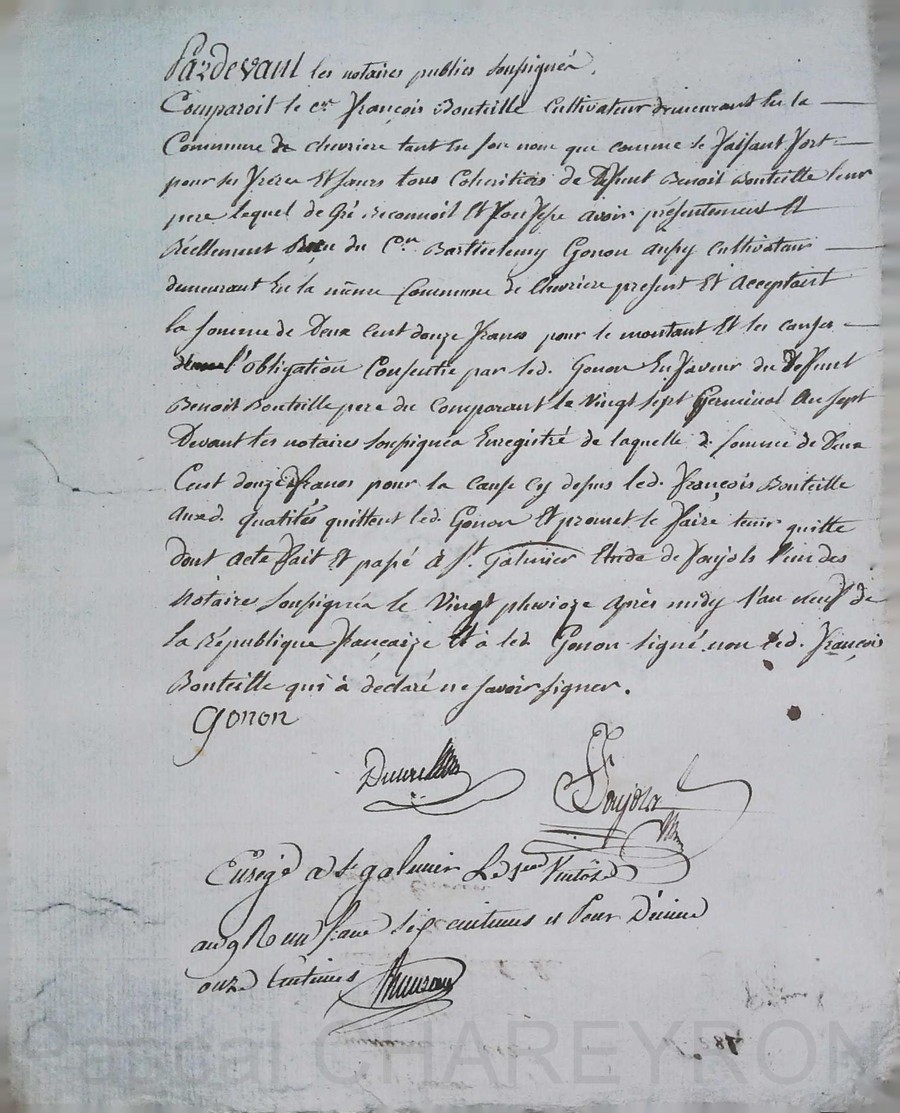 Pardevant les notaires publics soussignés,
Comparoit le cen françois Bouteille Cultivateur demeurant En la
Commune de chevriere tant En son nom que comme se faisant fort
pour ses freres Et sœurs tous Coheritiers de Defunt Benoit Bouteille leur
pere lequel de Gré reconnoit Et Confesse avoir présentement Et
Réellement Reçu du Cen Barthelemy Gonon aussy Cultivateur
demeurant En la même Commune de Chevriere present Et acceptant
la somme de Deux Cent douze francs pour le montant Et les causes
de l'obligation Consentie par led. Gonon En faveur du Defunt
Benoit Bouteille pere du Comparant le Vingt sept Germinal an sept
Devant les notaires soussignés Enregistré de laquelle d. somme de Deux
Cent douze francs pour la Cause Cy dessus led. françois Bouteille
auxd. qualités quittent led. Gonon Et promet le faire tenir quitte
dont acte fait Et passé à St. Galmier Etude de Faujols l'un des
Notaires soussignés le Vingt pluvioze après midy l'an neuf de
la République francaize Et à led. Gonon signé non led. françois
Bouteille qui à déclaré ne savoir signer.
Gonon
Faujols
Enregé a St galmier Le 1er Ventôse
an 9 R un franc dix centimes et Pour Décime
onze Centimes
Pascal CHAREYRON